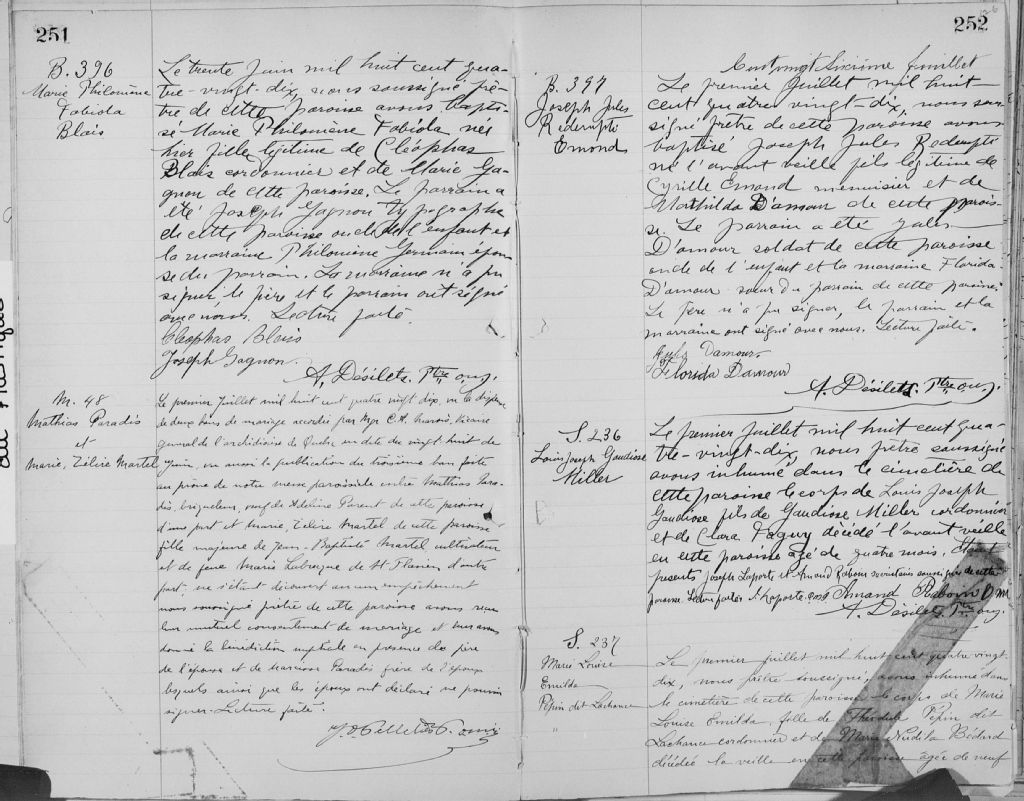 251
B. 396
Marie Philomène
Fabiola
Blais
Le trente Juin mil huit cent qua-
tre-vingt-dix, nous soussigné prê-
tre de cette paroisse avons bapti-
sé Marie Philomène Fabiola, née
hier fille légitime de Cléophas
Blais cordonnier et de Marie Ga-
gnon de cette paroisse. Le parrain a
été Joseph Gagnon typographe
de cette paroisse oncle de l'enfant et
la marraine Philomène Germain épou-
se du parrain. La marraine n'a pu
signer, le père et le parrain ont signé
avec nous. Lecture faite.
Cleophas Blais
Joseph Gagnon.
A. Désilets. Ptre
M. 48
Mathias Paradis
et
Marie, Zélire Martel
Le premier Juillet mil huit cent quatre vingt dix, vu la dispense
de deux bans de mariage accordée par Mgr C. A. Marois, Vicaire
général de l'archidiocèse de Québec en date du vingt huit de
Juin, vu aussi la publication du troisième ban faite
au prône de notre messe paroissiale entre Mathias Para-
dis, briqueleur, veuf de Adeline Parent de cette paroisse
d'une part et Marie, Zélire Martel de cette paroisse
fille majeure de Jean-Baptiste Martel cultivateur
et de feue Marie Labrecque de St. Flavien d'autre
part; ne s'étant découvert aucun empêchement
nous soussigné prêtre de cette paroisse avons reçu
leur mutuel consentement de mariage et leur avons
donné la bénédiction nuptiale en présence du père
de l'épouse et de Paradis frère de l'époux
lesquels ainsi que les époux ont déclaré ne pouvoir
signer. Lecture faite.
252
Cent vingt Sixième feuillet
B. 397
Joseph Jules
Redempte
Emond
Le premier Juillet mil huit-
cent quatre vingt-dix, nous sous-
signé prêtre de cette paroisse avons
baptisé Joseph Jules Redempte
né l'avant veille fils légitime de
Cyrille Emond menuisier et de
Mathilda D'amour de cette parois-
se. Le parrain a été Jules
D'amour soldat de cette paroisse
oncle de l'enfant et la marraine Florida
D'amour soeur du parrain de cette paroisse.
Le père n'a pu signer, le parrain et la
marraine ont signé avec nous. Lecture faite.
Jules Damour.
Florida Damour
A. Désilets. Ptre
S. 236
Louis Joseph Gaudiose
Miller
Le premier Juillet mil huit cent qua-
tre-vingt-dix, nous prêtre soussigné
avons inhumé dans le cimetière de
cette paroisse le corps de Louis Joseph
Gaudiose fils de Gaudiose Miller cordonnier
et de Clara Paguy décédé l'avant veille
en cette paroisse agé de quatre mois. Etaient
presents Joseph Laporte et Amand Rabouin de cette
paroisse. Lecture faite. J. Laporte Amand Rabouin
A. Désilets. Ptre
S. 237
Marie Louise
Emilda
Pépin dit Lachance
Le premier juillet mil huit cent quatre vingt-
dix, nous prêtre soussigné, avons inhumé dans
le cimetière de cette paroisse le corps de Marie
Louise Emilda, fille de Théodule Pépin dit
Lachance cordonnier et de Marie Bédard
décédée la veille en cette paroisse âgée de neuf